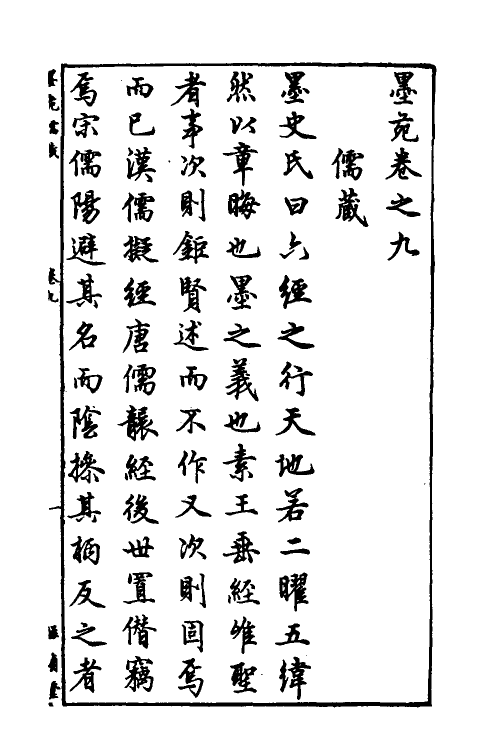 墨苑卷之九
儒藏
墨史氏曰六經之行天地若二曜五緯
然以章晦也墨之義也素王垂經唯聖
者事次則鉅賢述而不作又次則固焉
而已漢儒擬經唐儒䵝經後世置僭竊
焉宋儒陽避其名而陰操其柄反之者
卷九
一